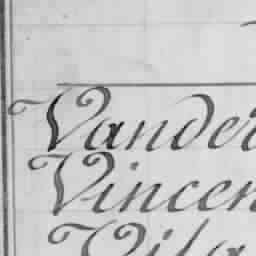 Vander
Vincen
Vila